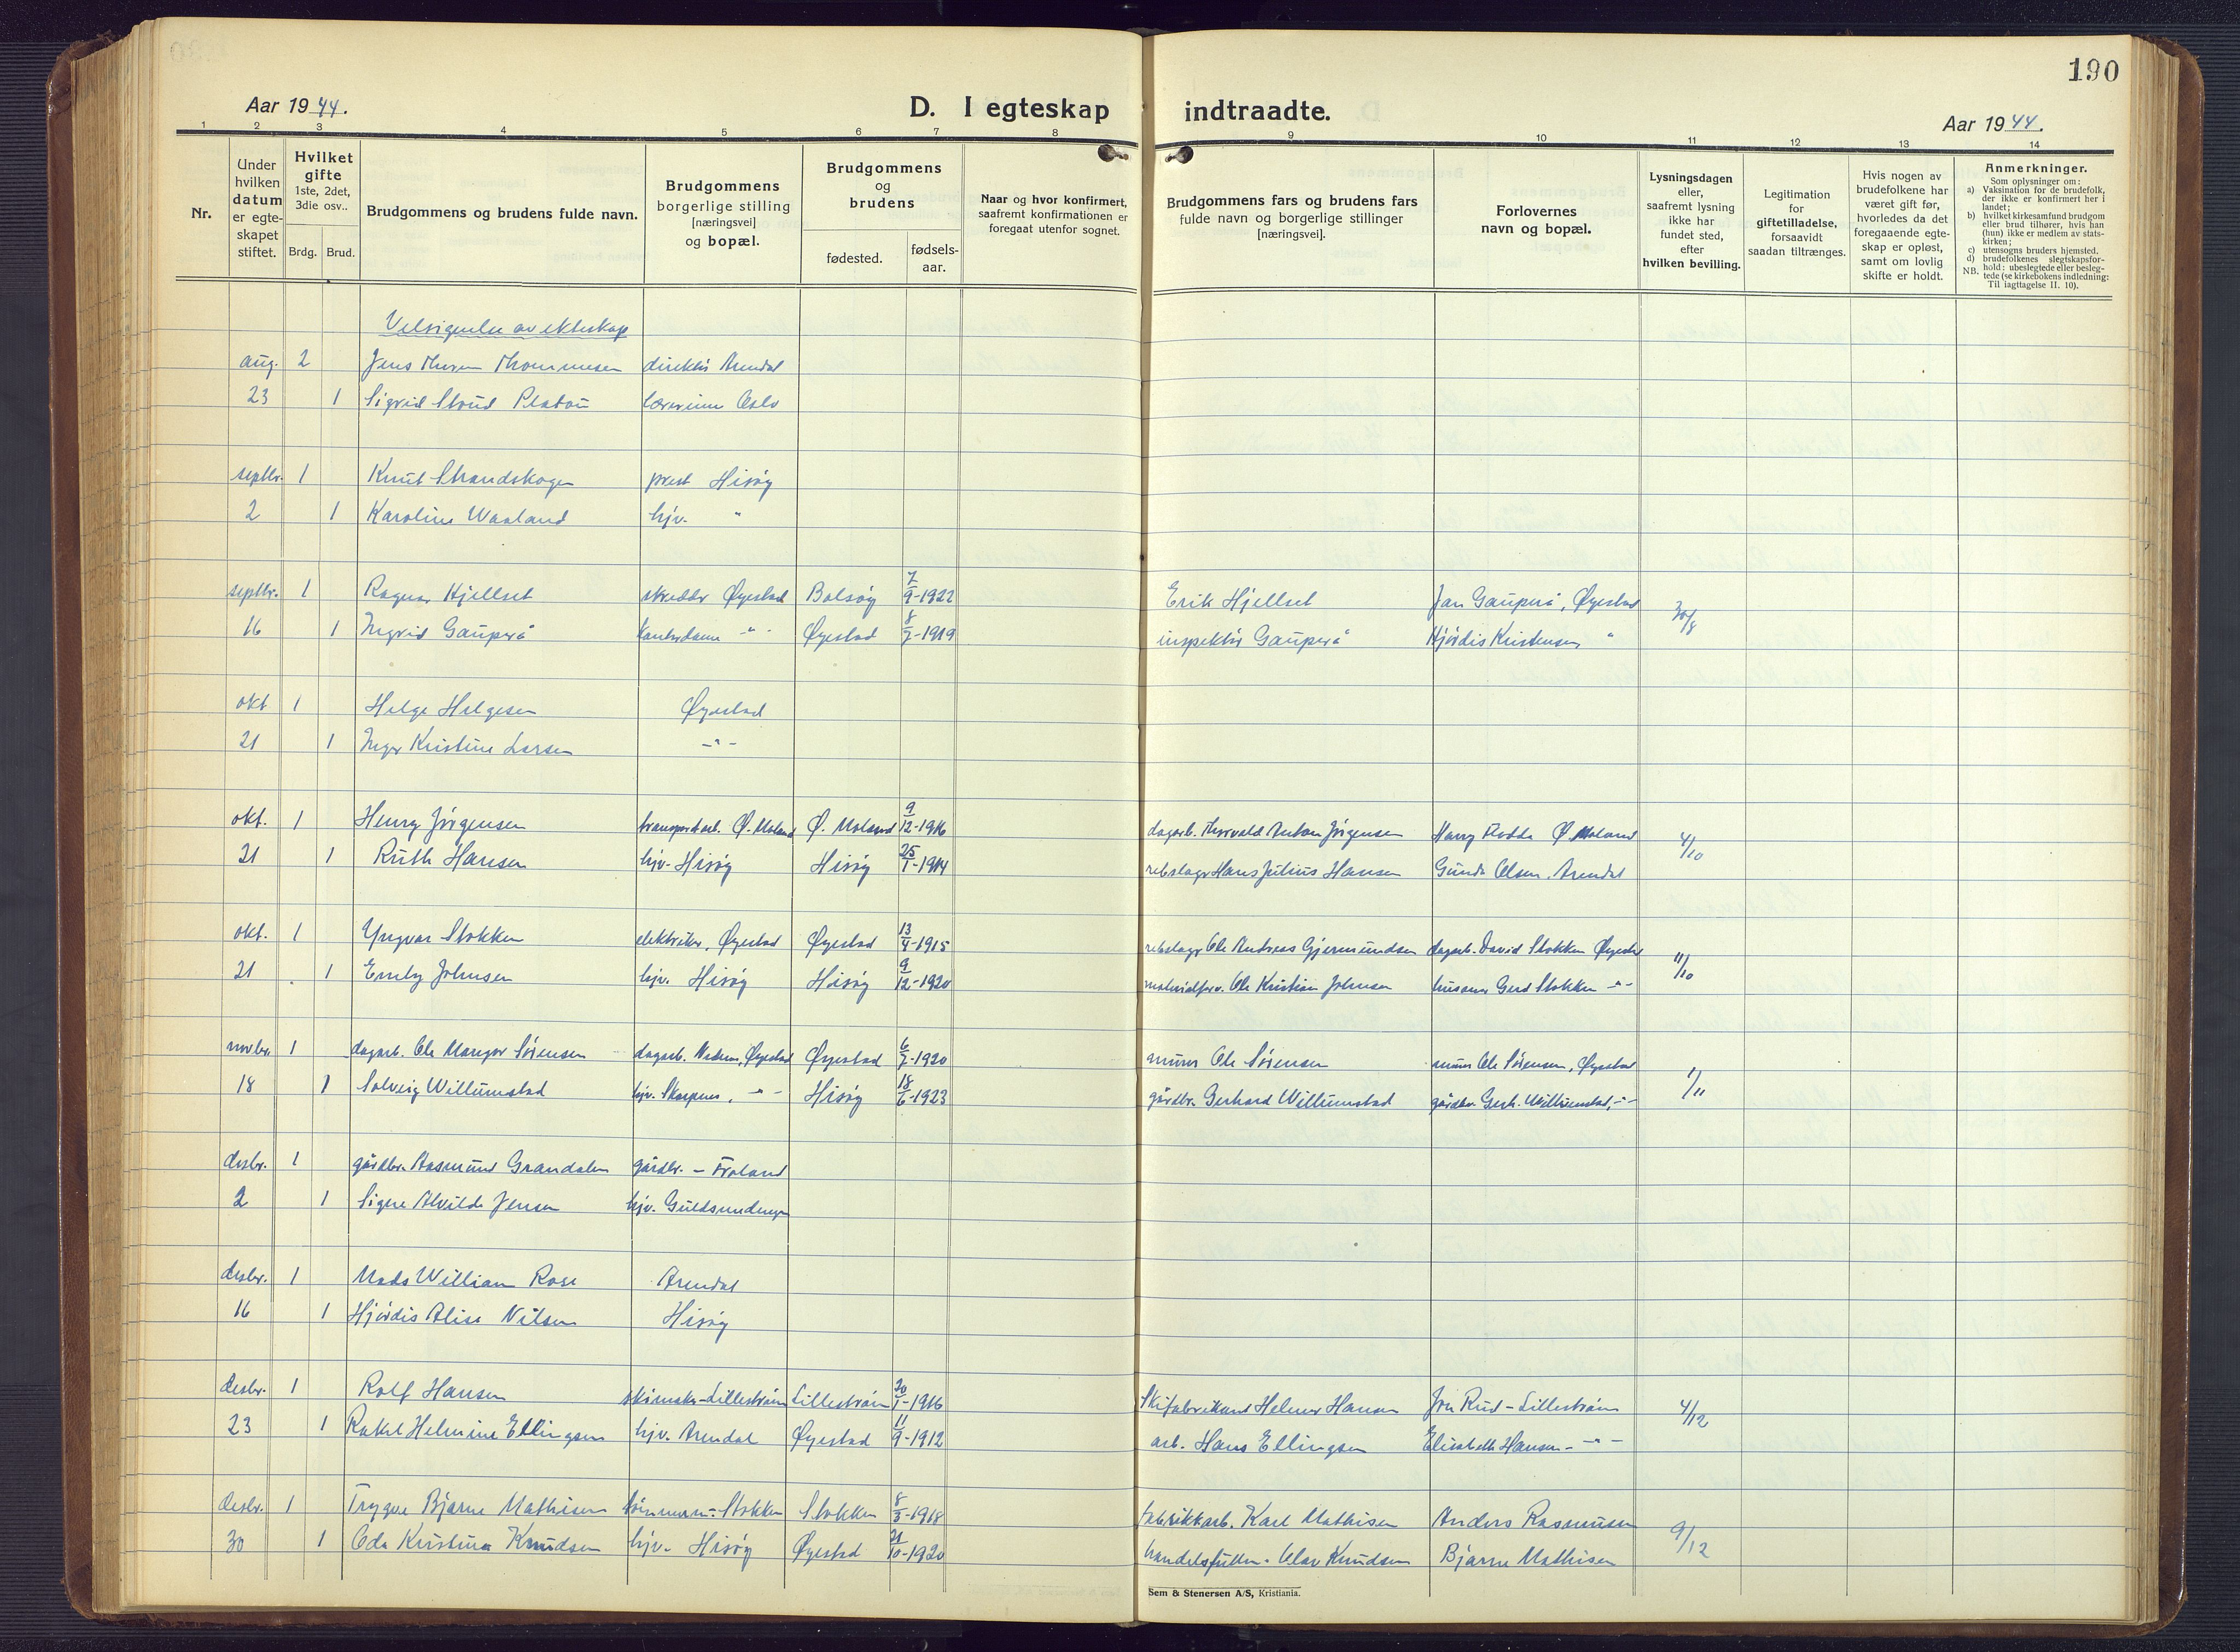 190
Aar 1944.
D. I egteskap indtraadte.
Aar 1944.
1 2 3 4 5 6 7 8 9 10 11 12 13 14
Nr.
Under hvilken datum er egte- skapet stiftet.
Hvilket gifte 1ste, 2det, 3die osv..
Brdg. Brud.
Brudgommens og brudens fulde navn.
Brudgommens borgerlige stilling [næringsvei] og bopæl.
Brudgommens og brudens
fødested. fødsels- aar.
Naar og hvor konfirmert, saafremt konfirmationen er foregaat utenfor sognet.
Brudgommens fars og brudens fars fulde navn og borgerlige stillinger [næringsvei].
Forlovernes navn og bopæl.
Lysningsdagen eller, saafremt lysning ikke har fundet sted, efter hvilken bevilling.
Legitimation for giftetilladelse, forsaavidt saadan tiltrænges.
Hvis nogen av brudefolkene har været gift før, hvorledes da det foregaaende egte- skap er opløst, samt om lovlig skifte er holdt.
Anmerkninger.
Som oplysninger om:
a) Vaksination for de brudefolk, der ikke er konfirmert her i landet;
b) hvilket kirkesamfund brudgom eller brud tilhører, hvis han (hun) ikke er medlem av stats- kirken;
c) utensogns bruders hjemsted.
d) brudefolkenes slegtskapsfor- hold: ubeslegtede eller besleg- tede (se kirkebokens indledning:
NB. Til iagttagelse II. 10).
Velsignelse av ekteskap
aug. 2 Jens Thommesen direktör Arendal
23 1 Sigrid Stoud Platou lærerinne Oslo
septbr. 1 Knut Strandskogen prest Hisöy
2 1 Karoline Waaland hjv. "
septbr. 1 Ragnar Hjellset skredder Øyestad Bolsöy 7/9-1922 Erik Hjellset Jan Gauperå, Øyestad 30/8
16 1 Ingrid Gauperå kontordame -"- Øyestad 8/7-1919 inspektör Gauperå Hjördis Kristensen "
okt 1 Helge Helgesen Øyestad
21 1 Inger Kristine Larsen -"-
okt. 1 Henry Jörgensen transportarb. Ø. Moland Ø. Moland 9/12-1916 dagarb. Thorvald Anton Jörgensen Harry Flodda Ø. Moland 4/10
21 1 Ruth Hansen hjv. Hisöy Hisöy 25/1-1914 rebslager Hans Julius Hansen Gunda Olsen. Arendal
okt. 1 Yngvar Stokken elektriker, Øyestad Øyestad 13/4-1915 rebslager Ole Andreas Gjermundsen dagarb. David Stokken Øyestad 11/10
21 1 Emily Johnsen hjv. Hisöy Hisöy 9/12-1920 materialforv. Ole Kristian Johnsen husmor Gerd Stokken -"-
novbr. 1 dagarb. Ole Mangor Sörensen dagarb. Nedenes, Øyestad Øyestad 6/7-1920 murer Ole Sörensen murer Ole Sörensen, Øyestad 1/11
18 1 Solveig Willumstad hjv. Skarpnes, -"- Hisöy 18/6-1923 gårdbr. Gerhard Willumstad gårdbr. Gerh. Willumstad, -"-
desbr. 1 gårdbr. Aasmund Grandalen gårdbr. - Froland
2 1 Signe Alvilde Jensen hjv. Guldsmedengen
desbr. 1 Mads William Rose Arendal
16 1 Hjördis Alise Nilsen Hisöy
desbr. 1 Rolf Hansen skimaker-Lilleström Lilleström 20/1-1916 Skifabrikant Helmer Hansen Jon Rud-Lilleström 4/12
23 1 Rakel Helmine Ellingsen hjv. Arendal Øyestad 11/9-1912 arb. Hans Ellingsen Elisabeth Hansen -"-
desbr. 1 Trygve Bjarne Mathisen tömmerm.-Stokken Stokken 8/3-1918 fabrikkarb. Karl Mathisen Anders Rasmussen 9/12
30 1 Oda Kristina Knudsen hjv. Hisöy Øyestad 21/10-1920 handelsfullm. Olav Knudsen Bjarne Mathisen
Sem & Stenersen A/S, Kristiania.